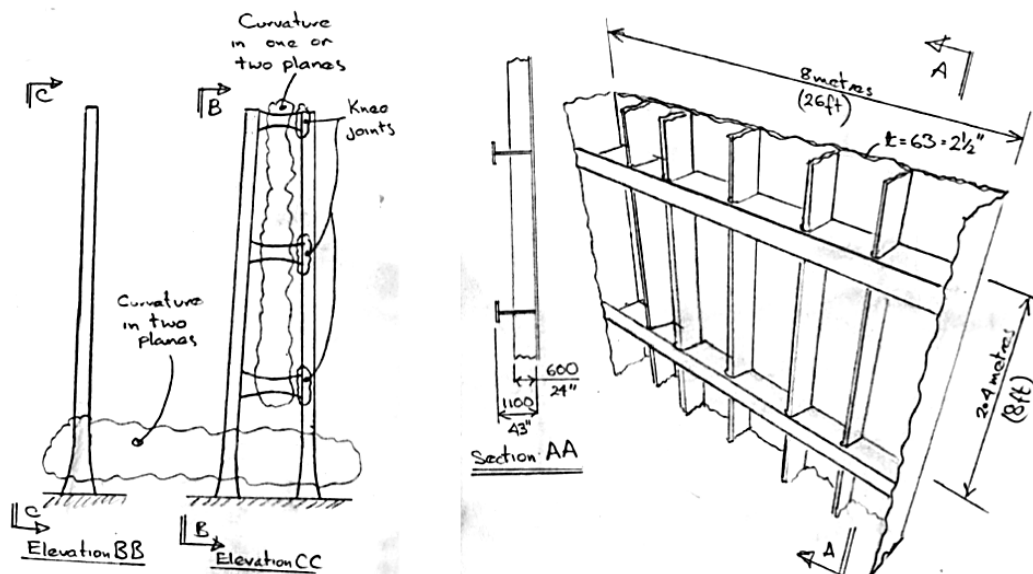 Curvature
in one or
two planes
C
B
Knee
joints
Curvature
in two
planes
C
Elevation BB
B
Elevation CC
600
24"
1100
43"
Section AA
8 metres
(26ft)
A
t=63=2½"
2.4 metres
(8ft)
A